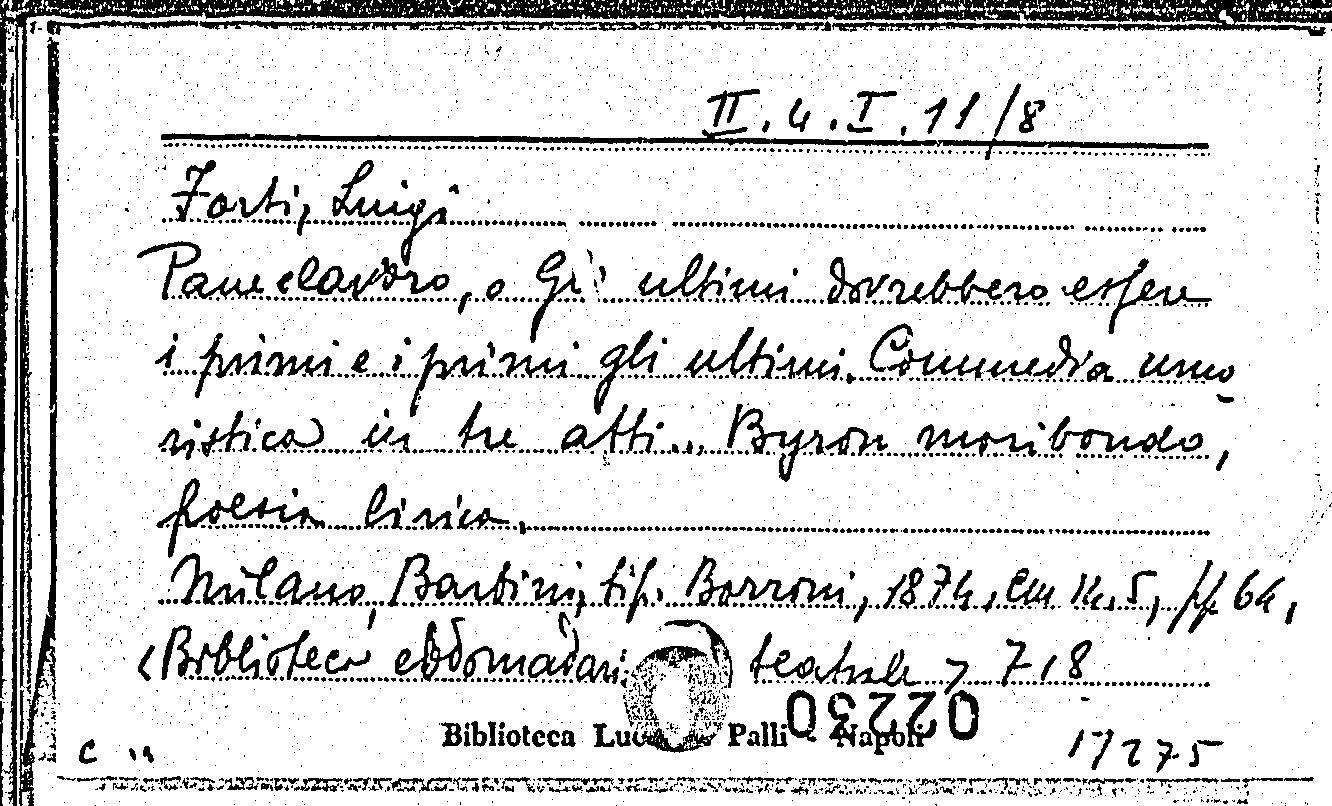 II. 4. I. 11/8
Forti, Luigi
Pane e lavoro, o Gli ultimi dovrebbero essere
i primi e i primi gli ultimi. Commedia umo
ristica in tre atti... Byron moribondo,
poesia lirica.
Milano, Barbini, tip. Borroni, 1874, cm 14.5, pp. 64,
<Biblioteca ebdomadari teatrale > 718
02230
Biblioteca Luc Palli - Napoli
17275
C